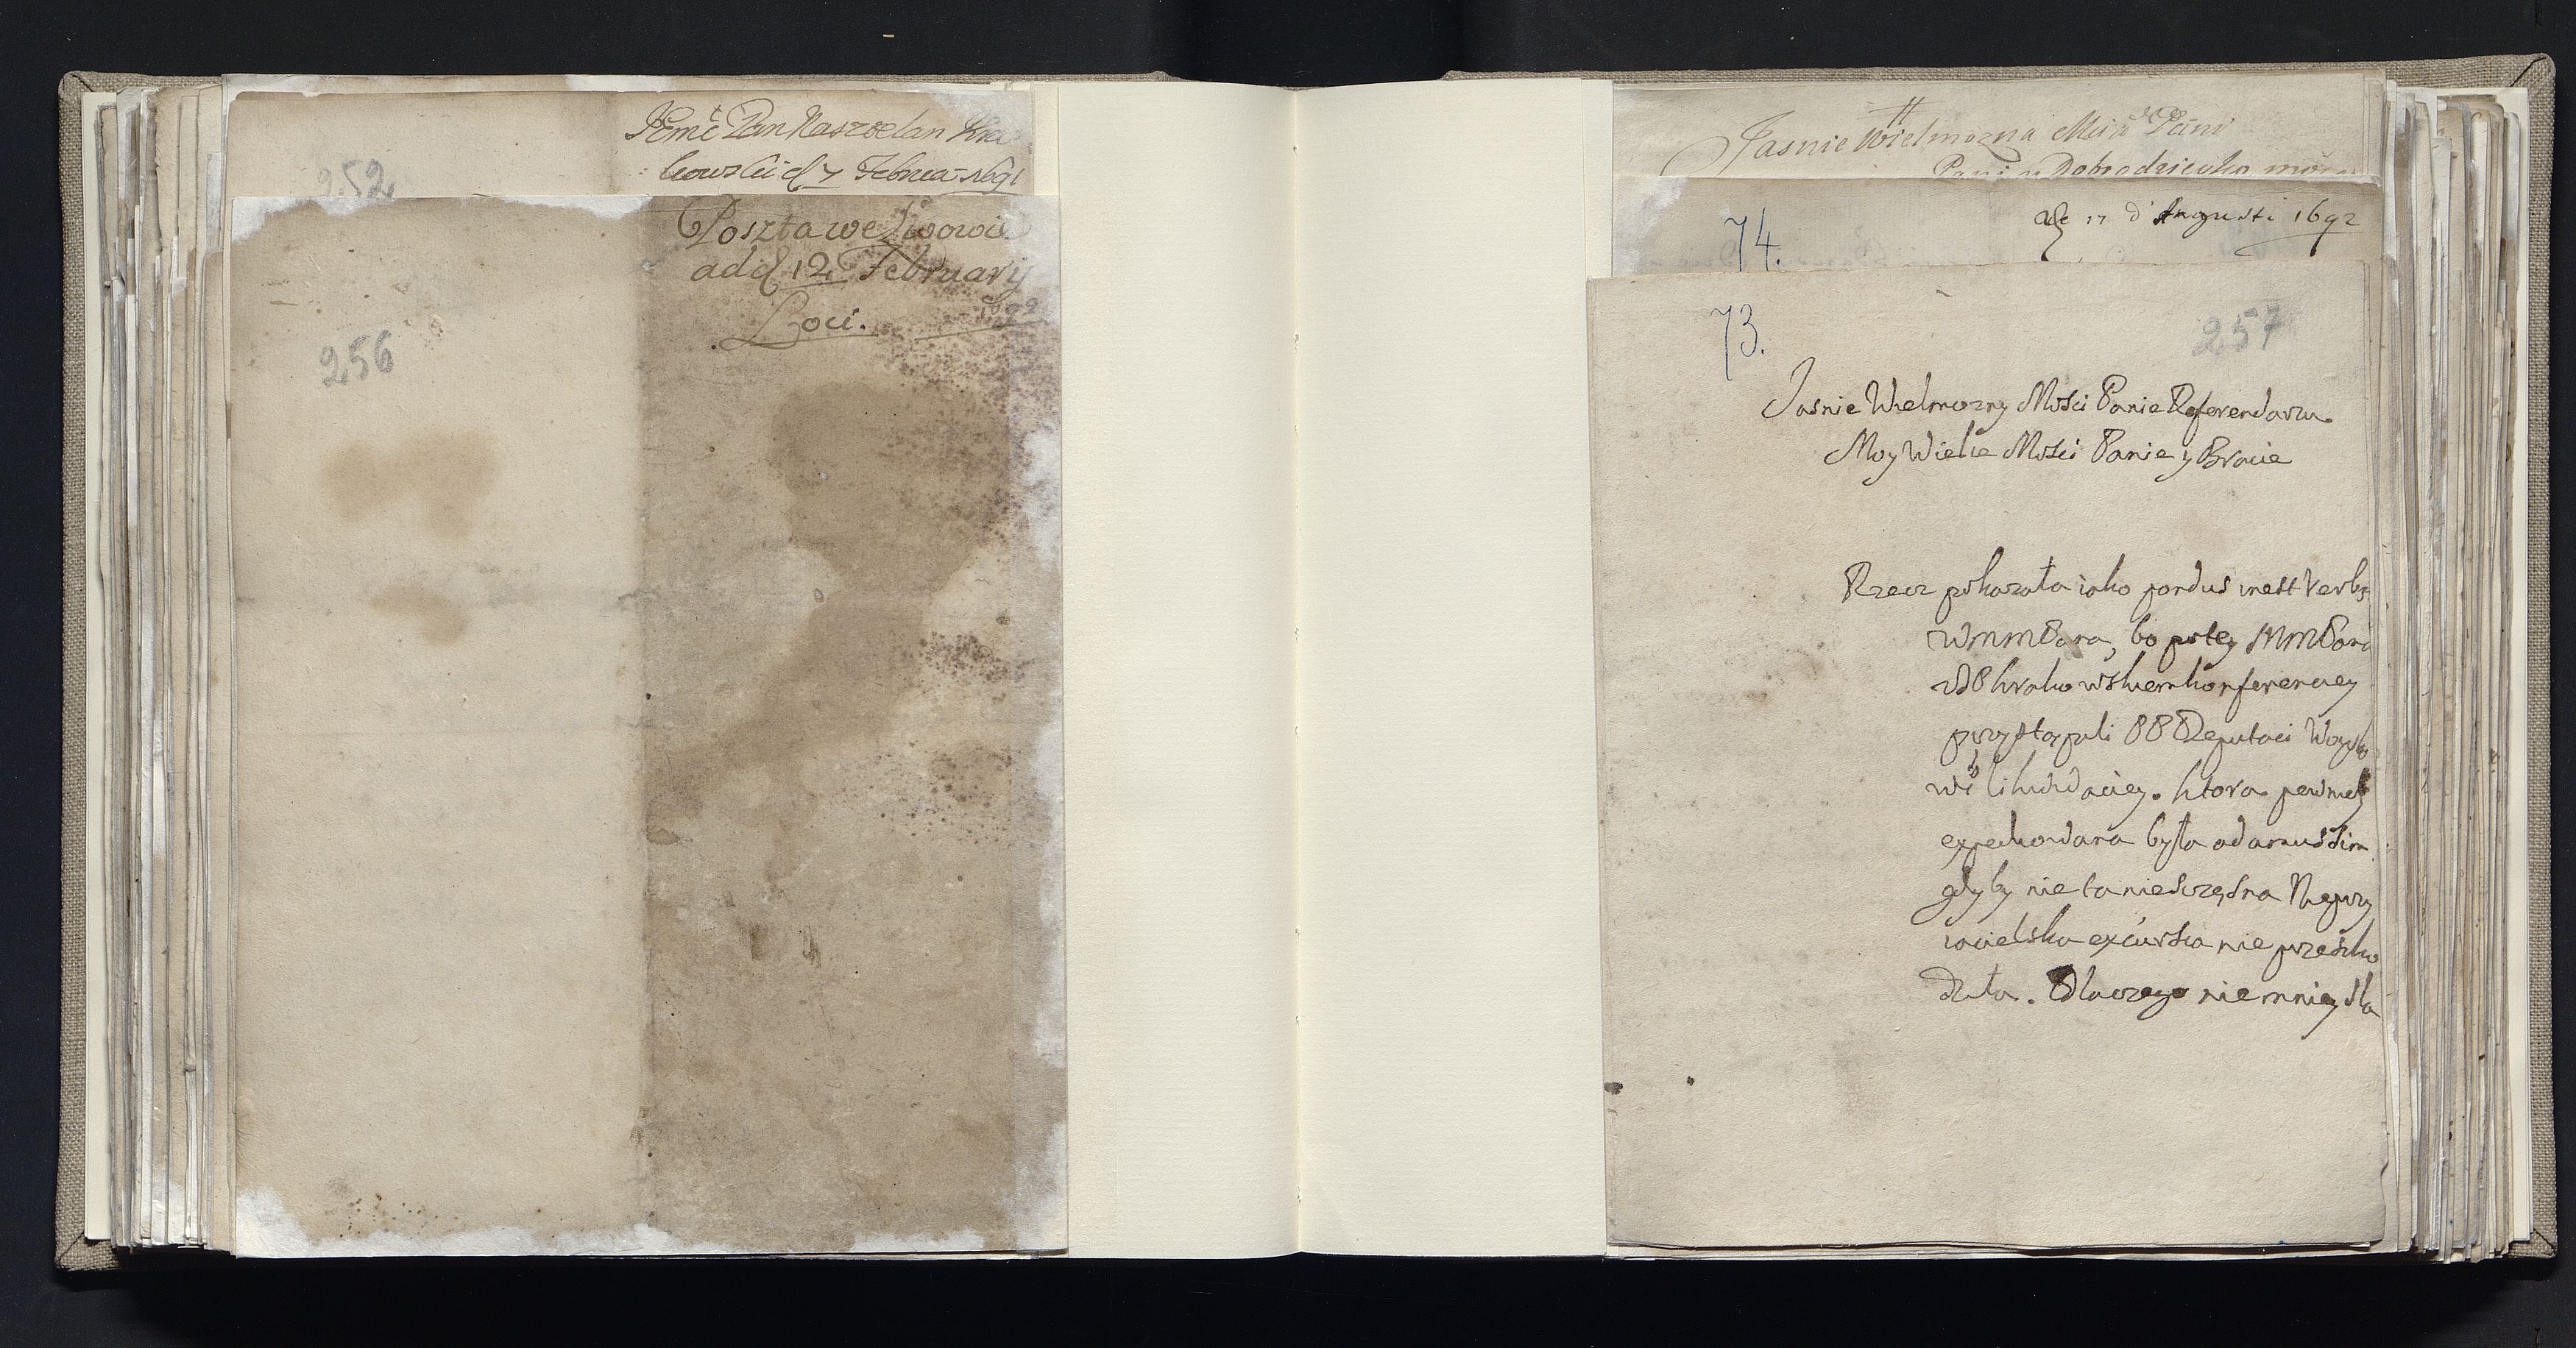 Jeme Pan Kasztelan Kra
kowski d 7 Februa: 1691
252
Poszta we Lwowie
ad d 12 February
1692
Loci.
256
Jasnie Wielmozna Mcia Pani
Pani y Dobrodzieyko
de 17 d' Augusti 1692
74.
73.
257
Jasnie Wielmozny Mości Panie Referendarzu
Moy Wielce Mości Panie y Bracie
Rzecz pokazała iako pondus inest Verbis
WMMPana, bo po tey MMPana
z JP krakowskiem konferencyey
przystąpili PP Deputaci Woyska
do likwidacyey. ktora pewnie
expediowana była adamussim
gdyby nie ta nieszczęsna Nieprzy
iacielska excursia nie przeszko
dziła. Dlaczego niemniey dla